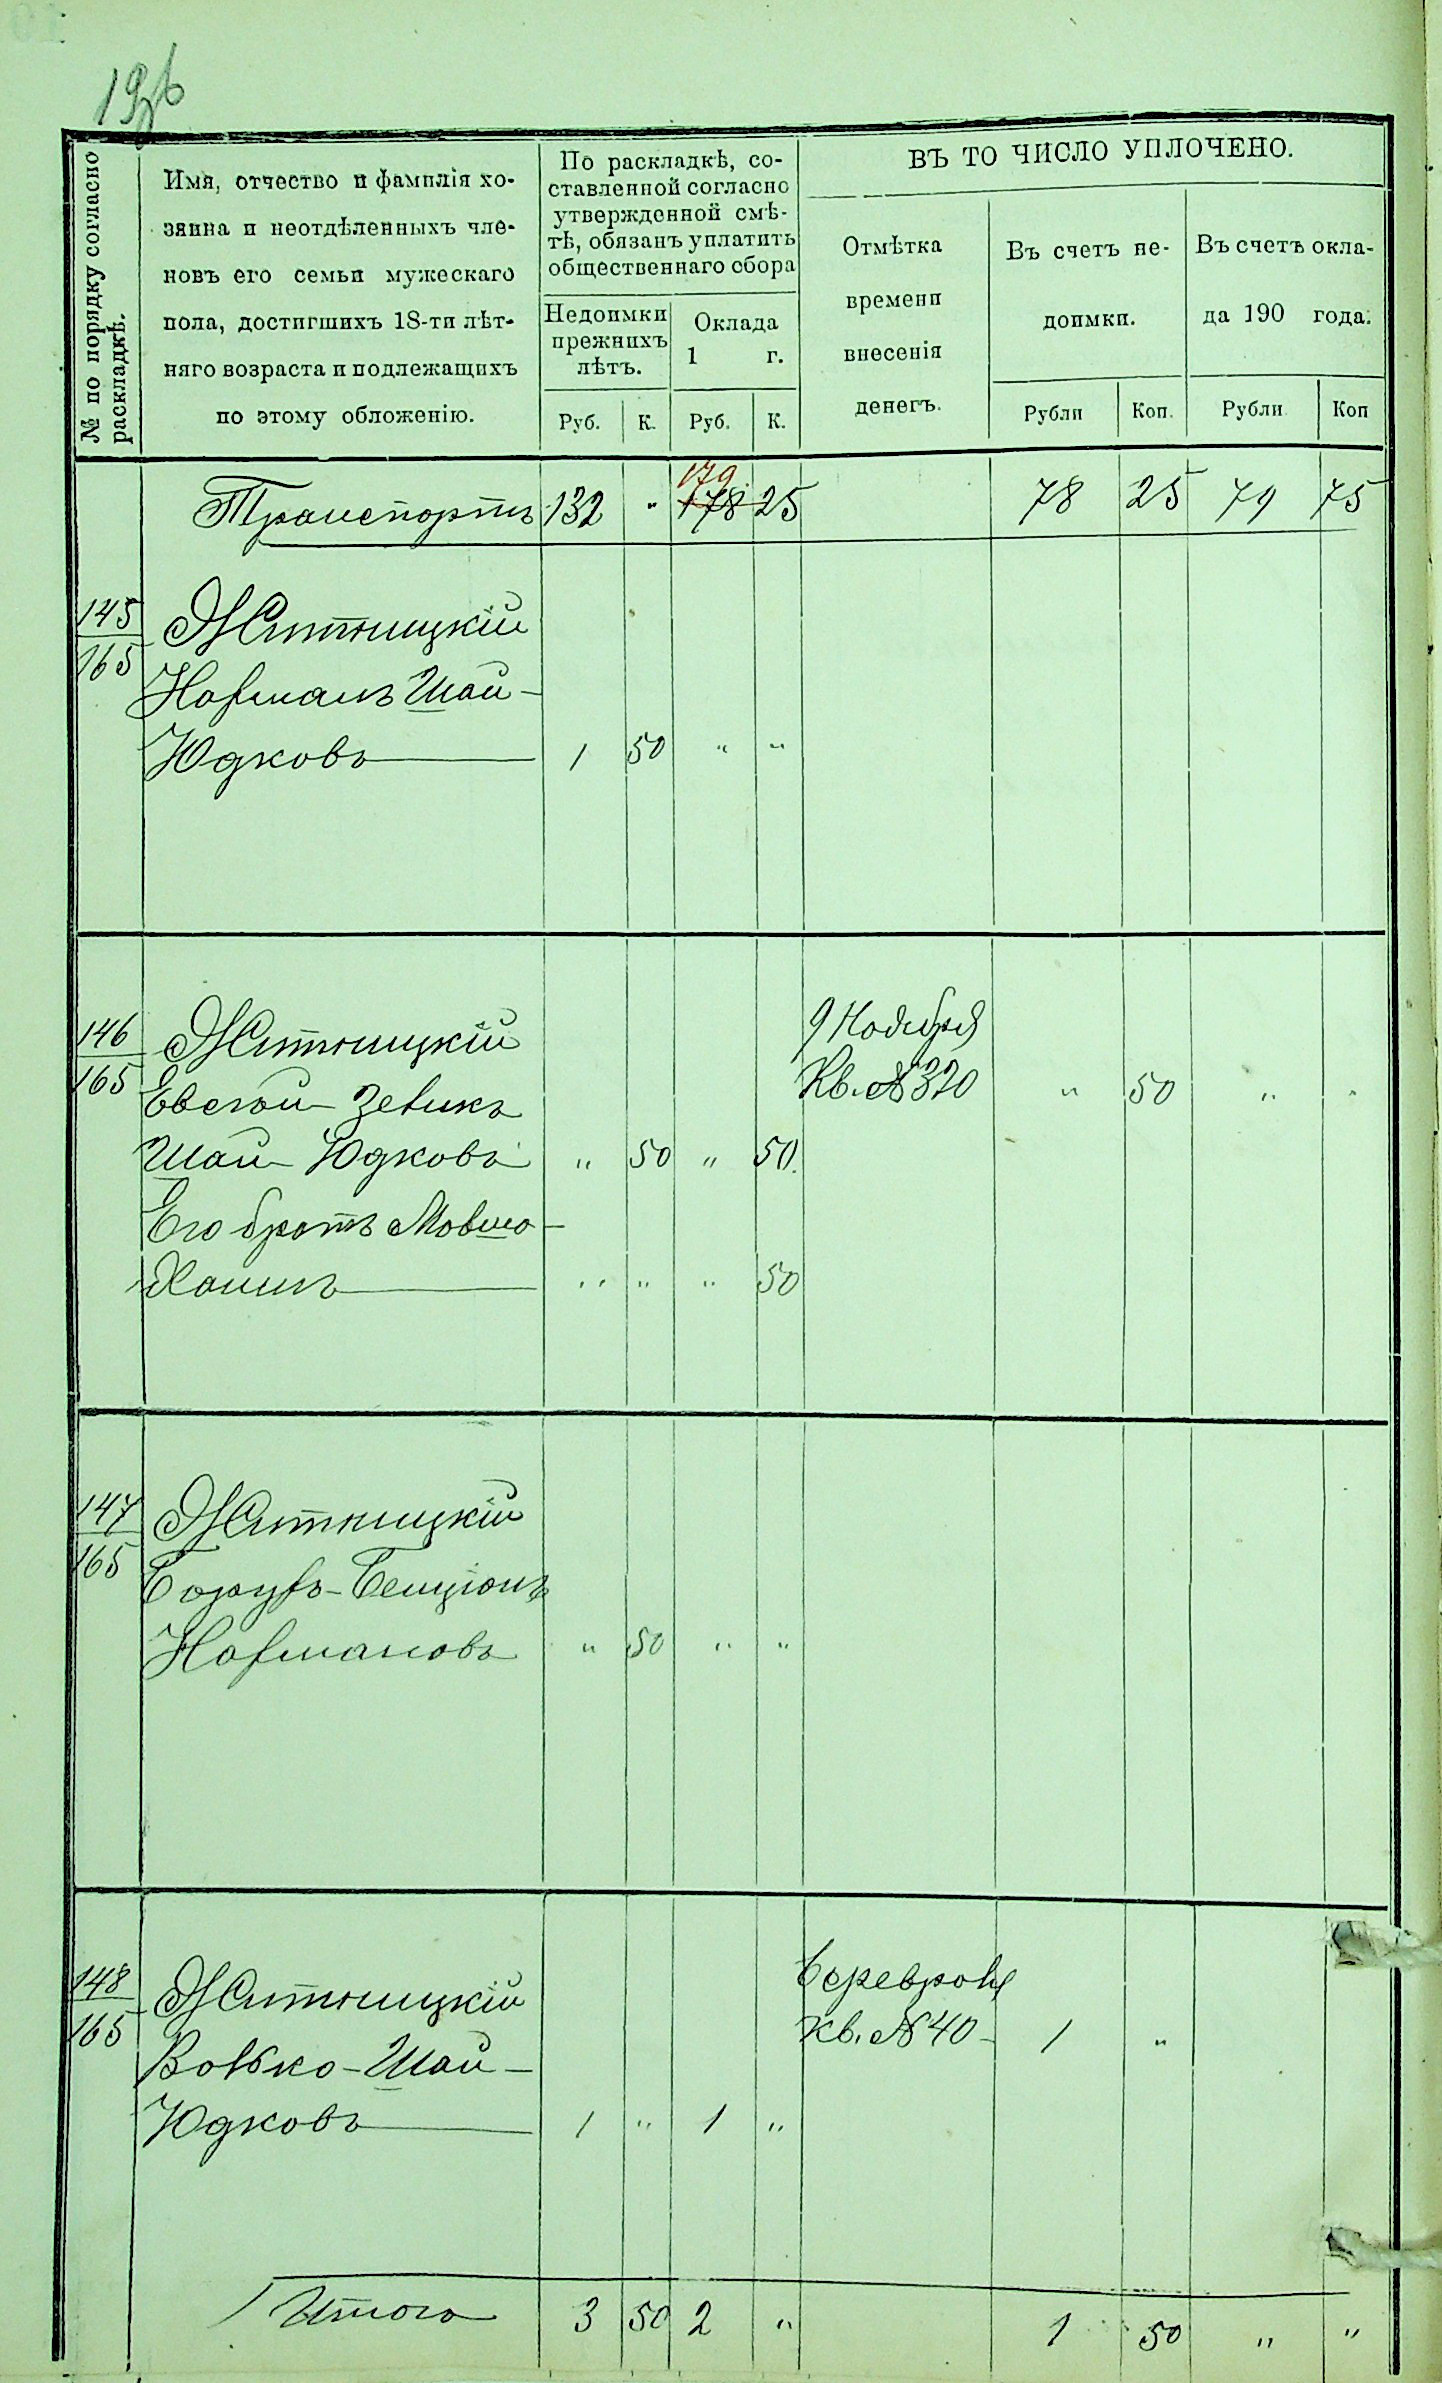 № по порядку согласно
раскладкѣ.
Имя, отчество и фамилія хо-
зяина и неотдѣленныхъ чле-
новъ его семьи мужескаго
пола, достигшихъ 18-ти лѣт-
няго возраста и подлежащихъ
по этому обложенію.
По раскладкѣ, со-
ставленной согласно
утвержденной смѣ-
тѣ, обязанъ уплатить
общественнаго сбора
Недоимки
прежнихъ
лѣтъ.
Оклада
1 г.
Руб. К. Руб. К.
ВЪ ТО ЧИСЛО УПЛОЧЕНО.
Отмѣтка
времени
внесенія
денегъ.
Въ счетъ не-
доимки.
Рубли Коп.
Въ счетъ окла-
да 190 года.
Рубли Коп
179
Транспортъ 132 " 178 25 78 25 79 75
145
165
Житницкій
Нахманъ Шаи-
Юдковъ 1 50 " "
146
165
Житницкій
Евсей-Зевикъ
Шаи-Юдковъ " 50 " 50
Его братъ Мовша-
Хаимъ " " " 50
9 Ноября
Кв. № 320 " 50 " "
147
165
Житницкій
Борухъ-Бенціонъ
Нахмановъ " 50 " "
148
165
Житницкій
Волько-Шаи-
Юдковъ 1 " 1 "
кв. № 40 1 "
Итого 3 50 2 " 1 50 " "